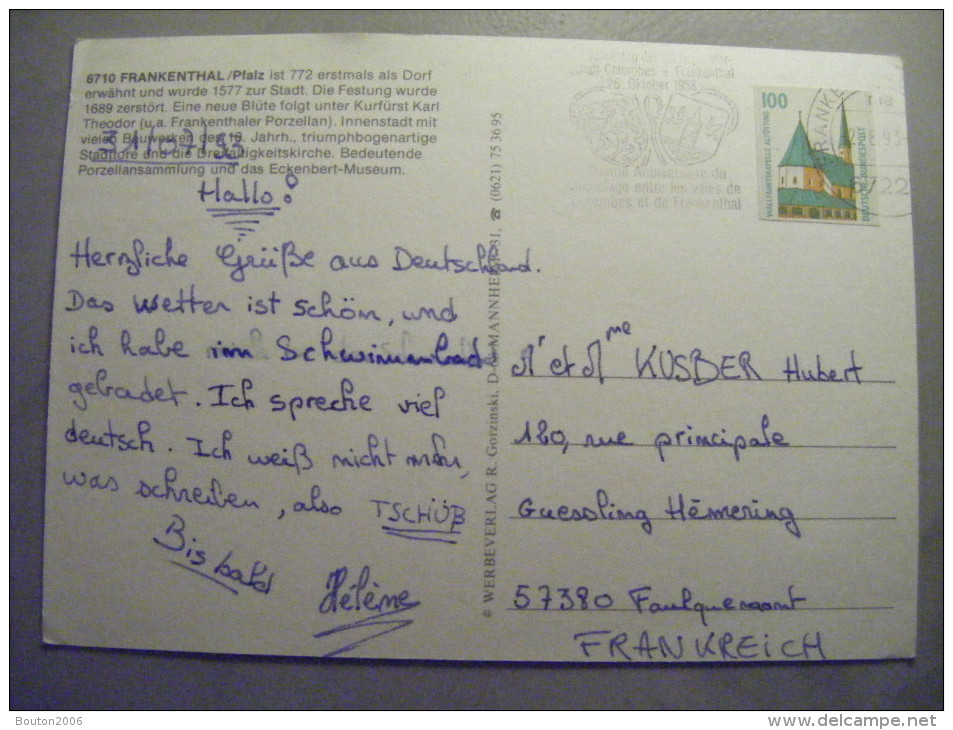 6710 FRANKENTHAL/Pfalz ist 772 erstmals als Dorf
erwähnt und wurde 1577 zur Stadt. Die Festung wurde
1689 zerstört. Eine neue Blüte folgt unter Kurfürst Karl
Theodor (u.a. Frankenthaler Porzellan). Innenstadt mit
vielen Bauwerken des 18. Jahrh., triumphbogenartige
Stadttore und die Dreifaltigkeitskirche. Bedeutende
Porzellansammlung und das Eckenbert-Museum.
Hallo!
Herzliche Grüße aus Deutschland.
Das Wetter ist schön, und
ich habe im Schwimmbad
gebadet. Ich spreche viel
deutsch. Ich weiß nicht mehr,
was schreiben, also TSCHÜß
Bis bald
Hélène
© WERBEVERLAG R. Gorzinski, MANNHEIM 31, ☎ (0621) 75 36 95
Colombes - Frankenthal
26. Oktober 1958
Anniversaire du
entre les villes de
Colombes et de Frankenthal
100
WALLFAHRTSKAPELLE ALTÖTTING
DEUTSCHE BUNDESPOST
Mr et Mme KUSBER Hubert
120, rue principale
Guessling Hémering
57380 Faulquemont
FRANKREICH
Bouton2006
www.delcampe.net